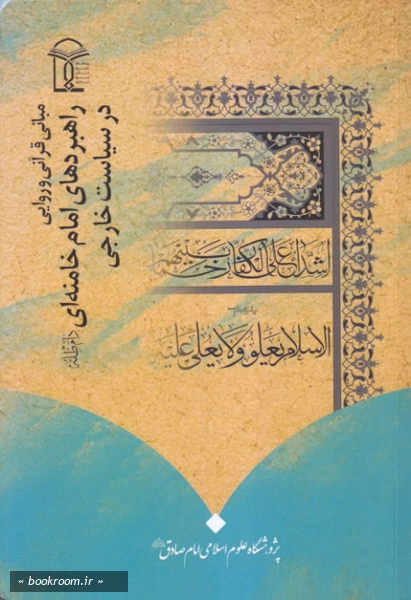 مبانی قرآنی و روایی
راهبردهای امام خامنه‌ای دام ظله
در سیاست خارجی
اشداء علی الکفار رحماء بینهم
الاسلام یعلو ولا یعلی علیه
پژوهشگاه علوم اسلامی امام صادق
« bookroom.ir »